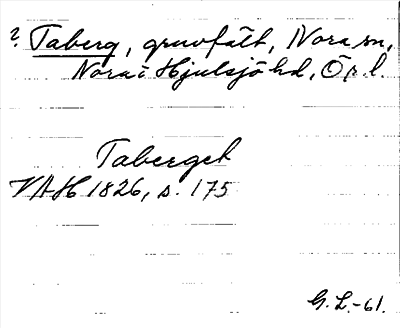 ? Taberg, gruvfält, Nora sn,
Nora o Hjulsjö hd, Ör. l.
Taberget
VAH 1826, s. 175
G. L. -61.